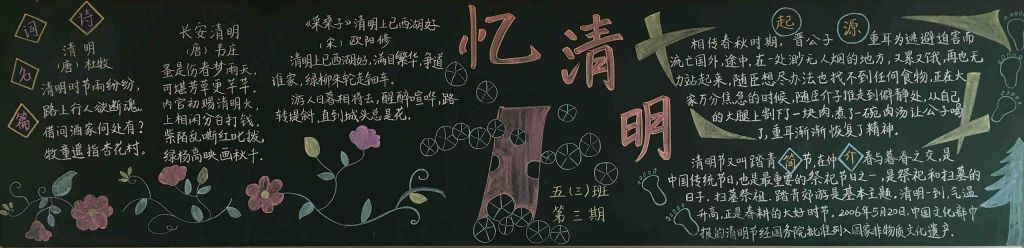 诗
词
名
篇
清明
(唐) 杜牧
清明时节雨纷纷,
路上行人欲断魂。
借问酒家何处有?
牧童遥指杏花村。
长安清明
(唐) 韦庄
蚤是伤春梦雨天,
可堪芳草更芊芊。
内官初赐清明火,
上相闲分白打钱。
紫陌乱嘶红叱拨,
绿杨高映画秋千。
《采桑子》清明上巳西湖好
(宋) 欧阳修
清明上巳西湖好,满目繁华,争道
谁家,绿柳朱轮走钿车。
游人日暮相将去,醒醉喧哗,路
转堤斜,直到城头总是花。
忆清明
五(三)班
第三期
起源
相传春秋时期,晋公子重耳为逃避迫害而
流亡国外,途中,在一处渺无人烟的地方,又累又饿,再也无
力站起来,随臣想尽办法也找不到任何食物,正在大
家万分焦急的时候,随臣介子推走到僻静处,从自己
的大腿上割下了一块肉,煮了一碗肉汤让公子喝
了,重耳渐渐恢复了精神。
简介
清明节又叫踏青节,在仲春与暮春之交,是
中国传统节日,也是最重要的祭祀节日之一,是祭祀和扫墓的
日子。扫墓祭祖、踏青郊游是基本主题。清明一到,气温
升高,正是春耕的大好时节。2006年5月20日,中国文化部申
报的清明节经国务院批准列入国家非物质文化遗产。